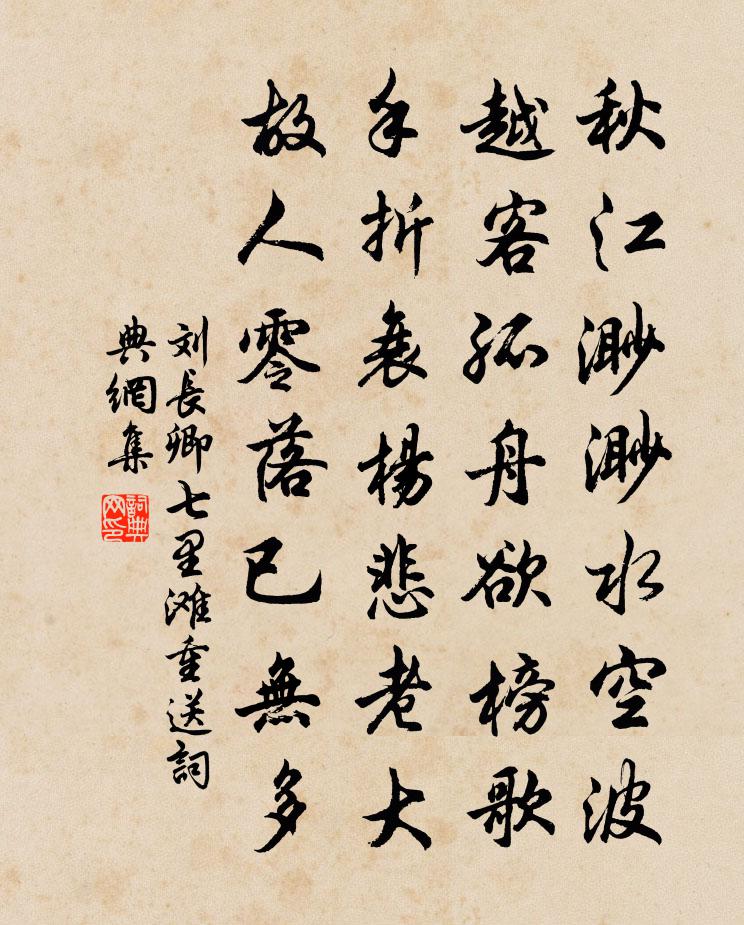 秋江渺渺水空波
越客孤舟欲榜歌
手折衰楊悲老大
故人零落已無多
刘長卿七里滩重送詞
典網集
詞典
网印